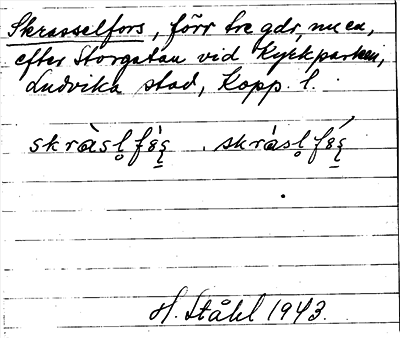 Skrasselfors, förr tre gdr, nu en,
efter Storgatan vid Kyrkparken,
Ludvika stad, Kopp. l.
H. Ståhl 1943.